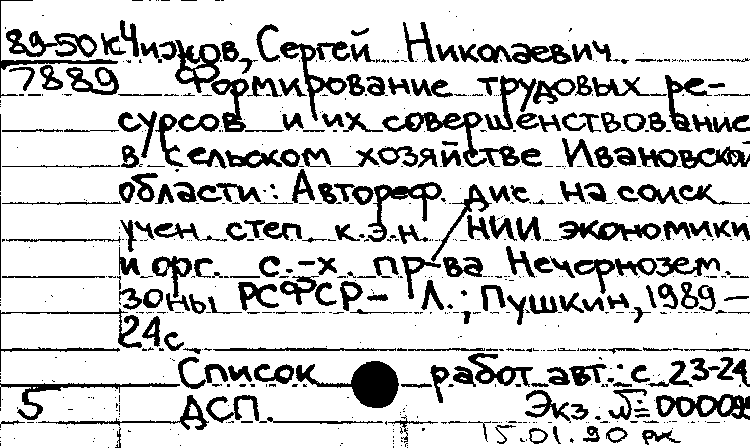 89-50к Чижков, Сергей Николаевич.
7889 Формирование трудовых ре-
сурсов и их совершенствование
в сельском хозяйстве Ивановской
области: Автореф. дис. на соиск
учен. степ. к.э.н. / НИИ экономики
и орг. с.-х. пр-ва Нечернозем.
зоны РСФСР.- Л.; Пушкин, 1989 -
24с
Список работ авт.: с 23-24
5 ДСП. Экз. №=000095
15.01.90